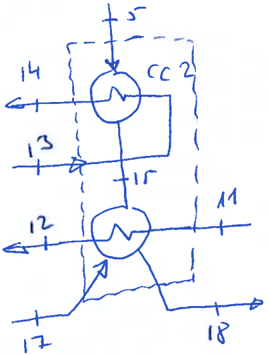 5
14
CC 2
13
15
12
11
17
18